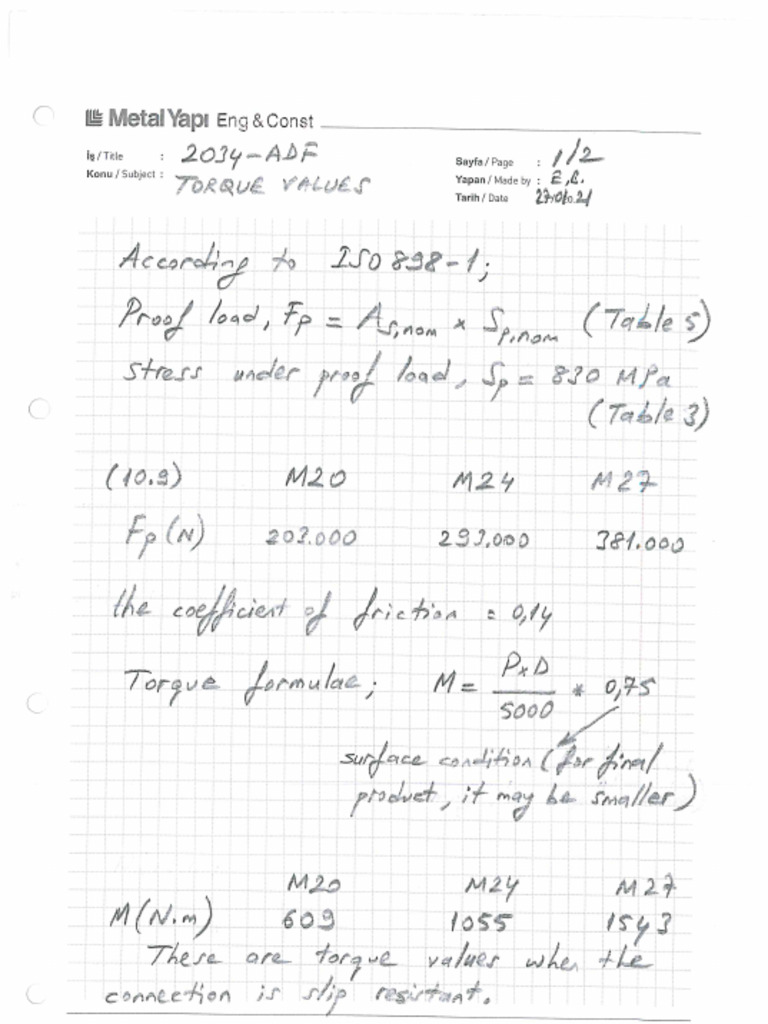 Metal Yapı Eng & Const
İş / Title : 2034-ADF
Konu / Subject : TORQUE VALUES
Sayfa / Page : 1/2
Yapan / Made by : E.B.
Tarih / Date
According to ISO 898-1;
Proof load, Fp = As,nom x Sp,nom (Table 5)
Stress under proof load, Sp = 830 MPa
(Table 3)
(10.9) M20 M24 M27
Fp (N) 203.000 293.000 381.000
the coefficient of friction = 0,14
Torque formulae; M = PxD / 5000 * 0,75
surface condition (for final
product, it may be smaller)
M20 M24 M27
M(N.m) 609 1055 1543
These are torque values when the
connection is slip resistant.